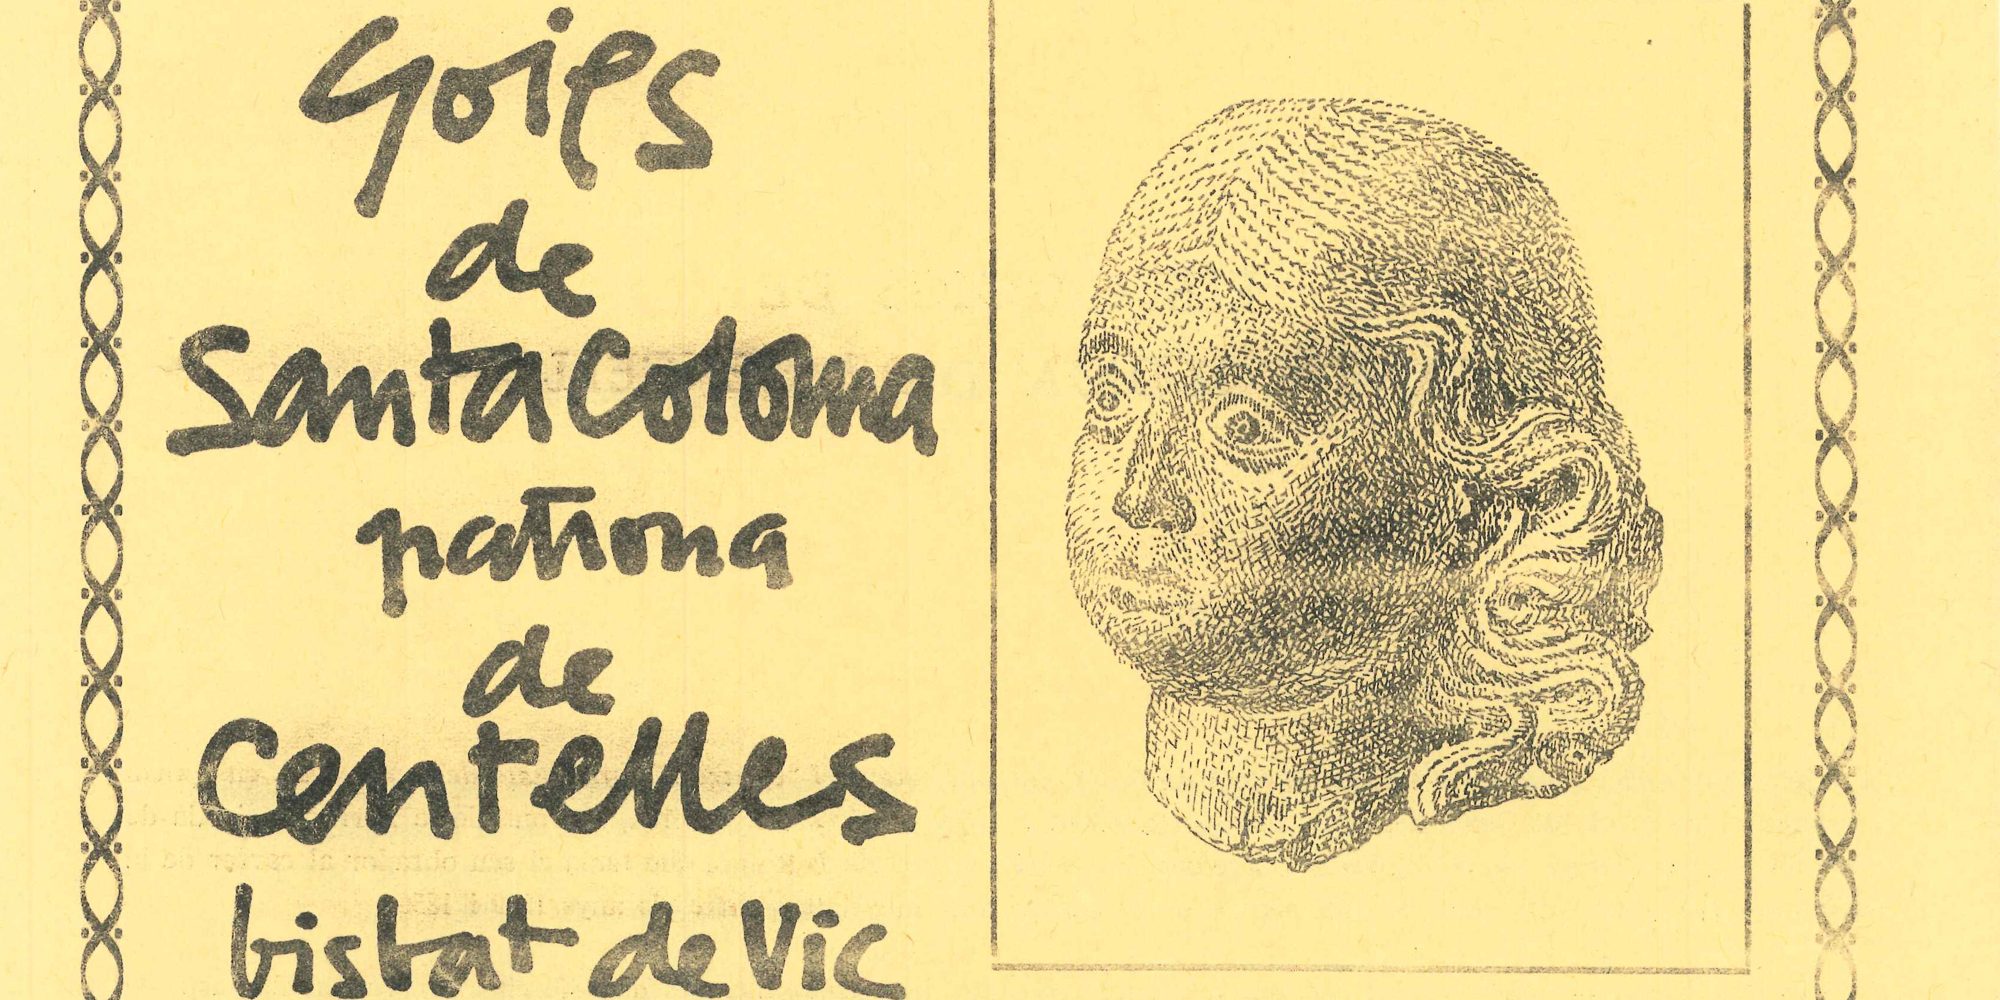 Goigs
de
Santa Coloma
patrona
de
Centelles
bisbat de Vic